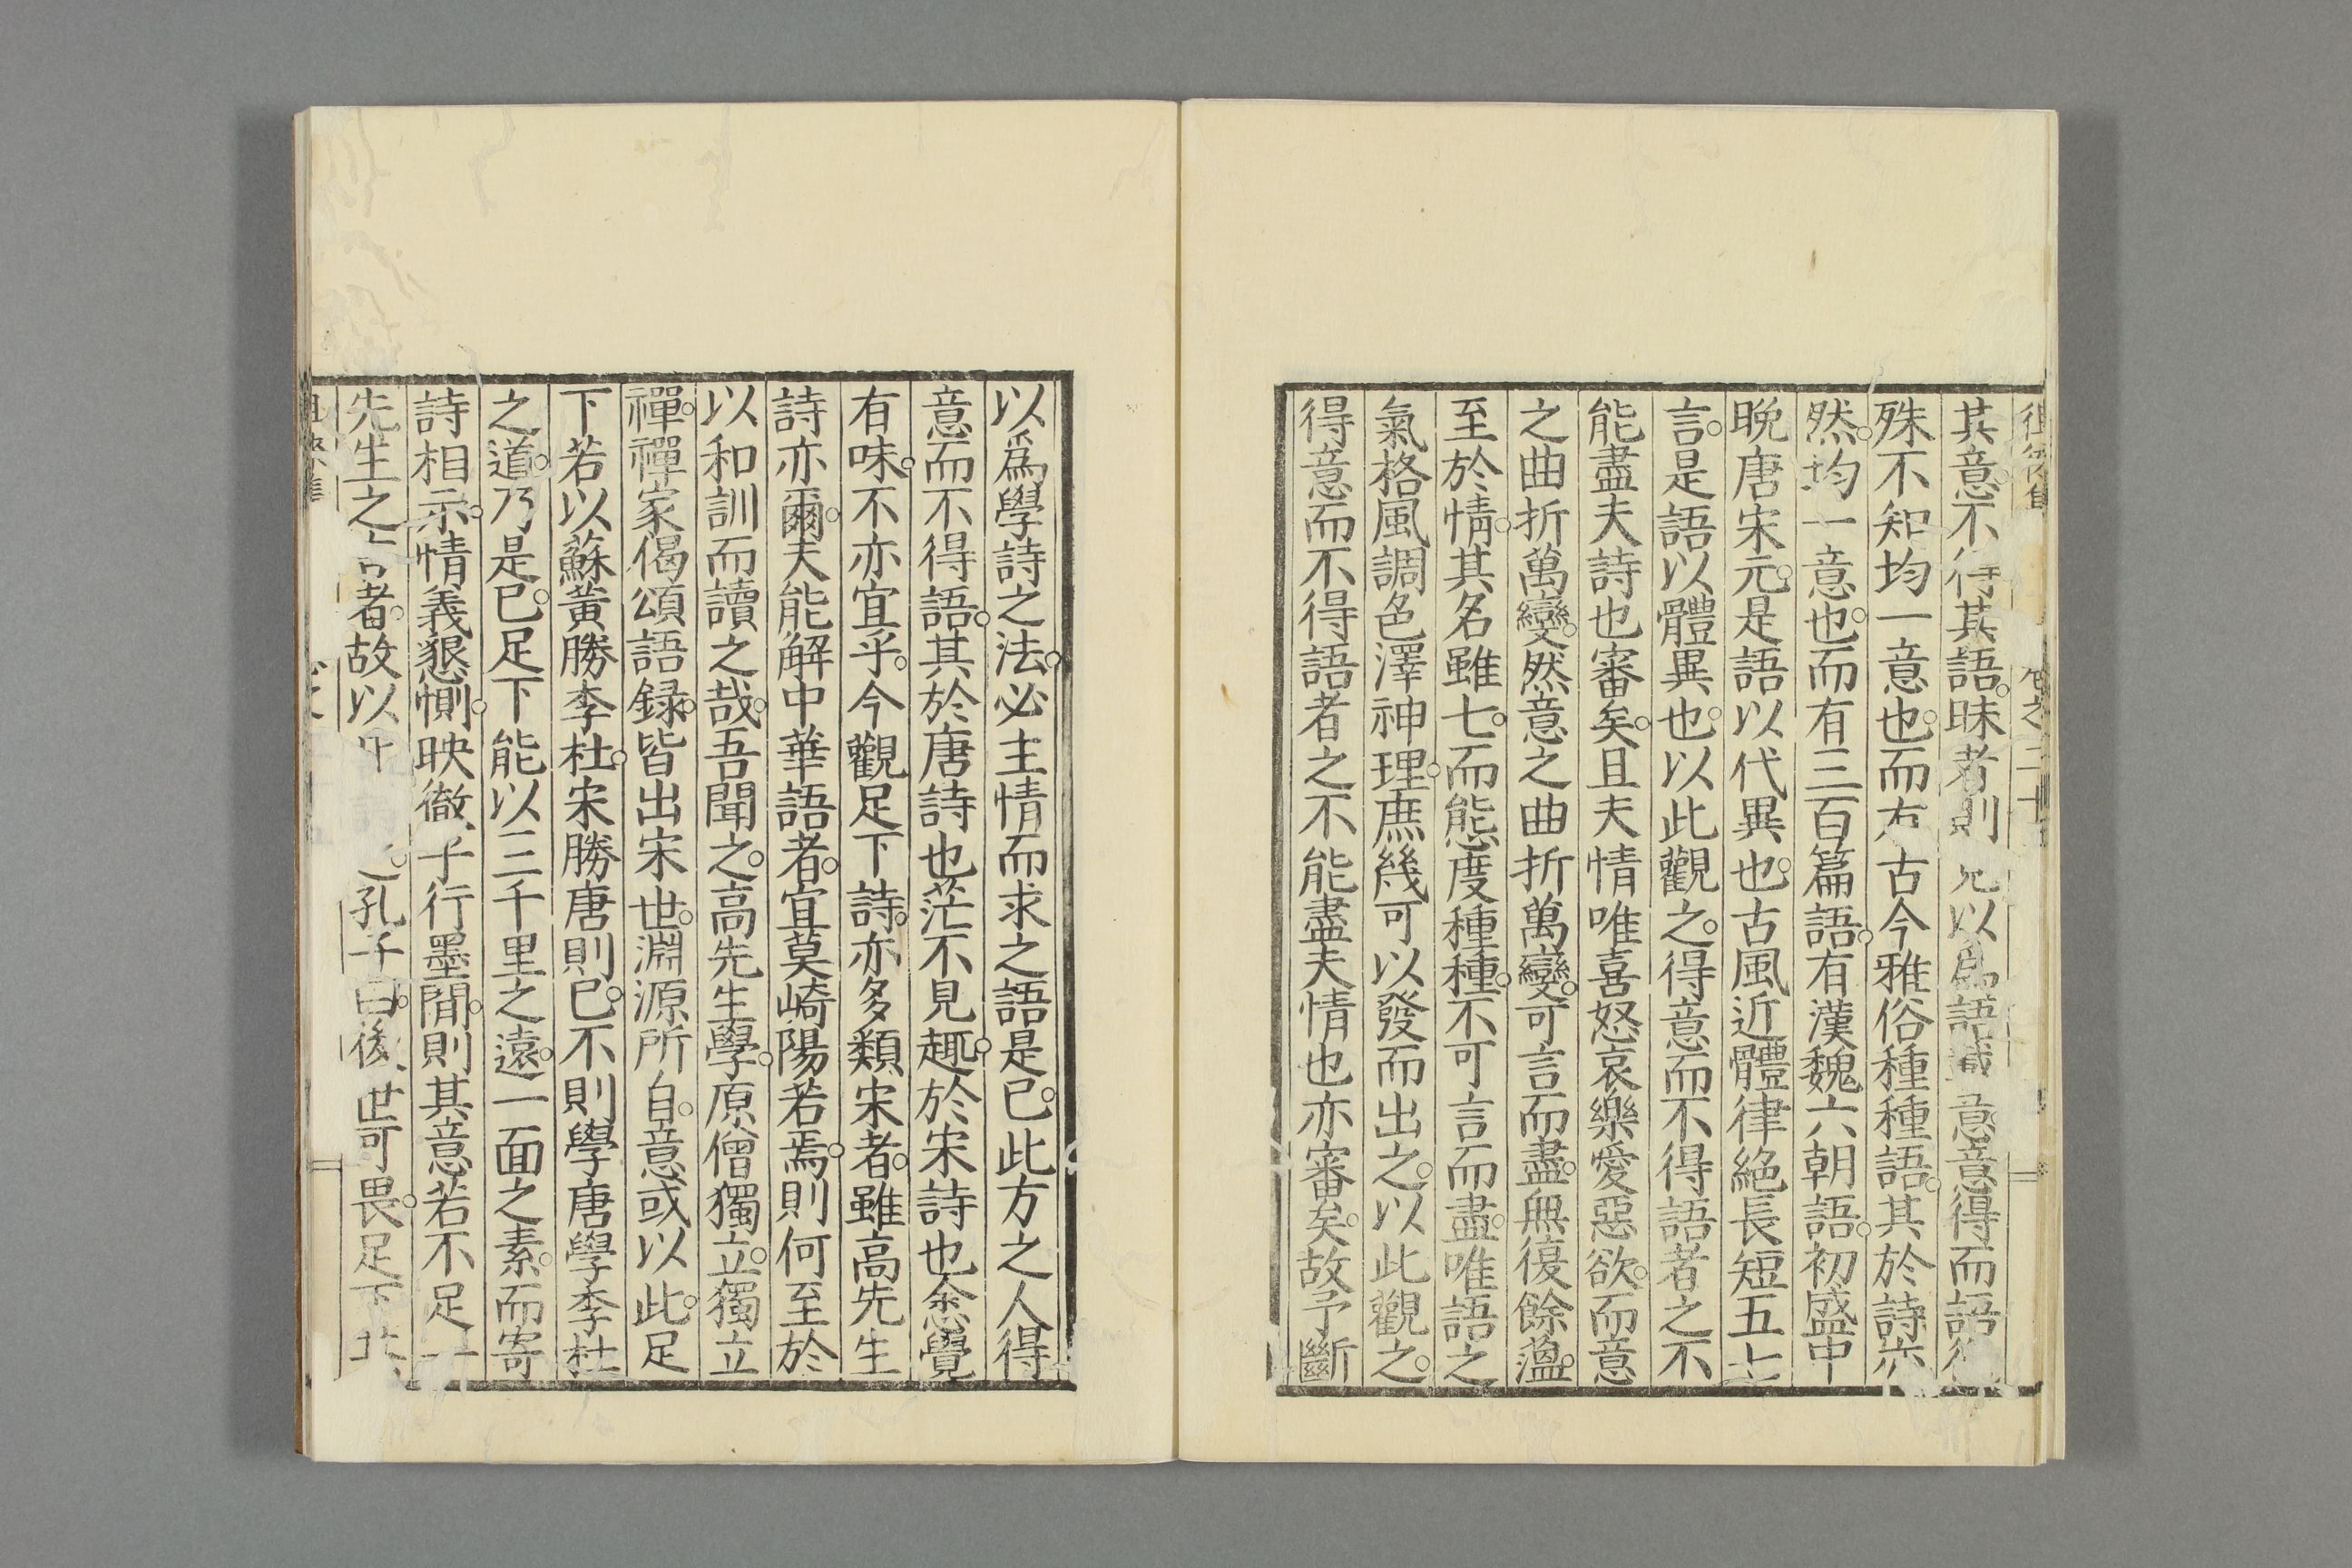 其意不得其語昧者則以爲語識意意得而語
殊不知均一意也而有古今雅俗種種語其於詩亦
然均一意也而有三百篇語有漢魏六朝語初盛中
晚唐宋元是語以代異也古風近體律絕長短五七
言是語以體異也以此觀之得意而不得語者之不
能盡夫詩也審矣且夫情唯喜怒哀樂愛惡欲而意
之曲折萬變然意之曲折萬變可言而盡無復餘薀
至於情其名雖七而態度種種不可言而盡唯語之
氣格風調色澤神理庶幾可以發而出之以此觀之
得意而不得語者之不能盡夫情也亦審矣故予斷
以爲學詩之法必主情而求之語是已此方之人得
意而不得語其於唐詩也茫不見趣於宋詩也悆覺
有味不亦宜乎今觀足下詩亦多類宋者雖高先生
詩亦爾夫能解中華語者宜莫崎陽若焉則何至於
以和訓而讀之哉吾聞之高先生學原僧獨立獨立
禪禪家偈頌語録皆出宋世淵源所自意或以此足
下若以蘇黃勝李杜宋勝唐則已不則學唐學李杜
之道乃是已足下能以三千里之遠一面之素而寄
詩相示情義懇惻映徹乎行墨間則其意若不足
先生之言者故以 孔子曰後世可畏足下